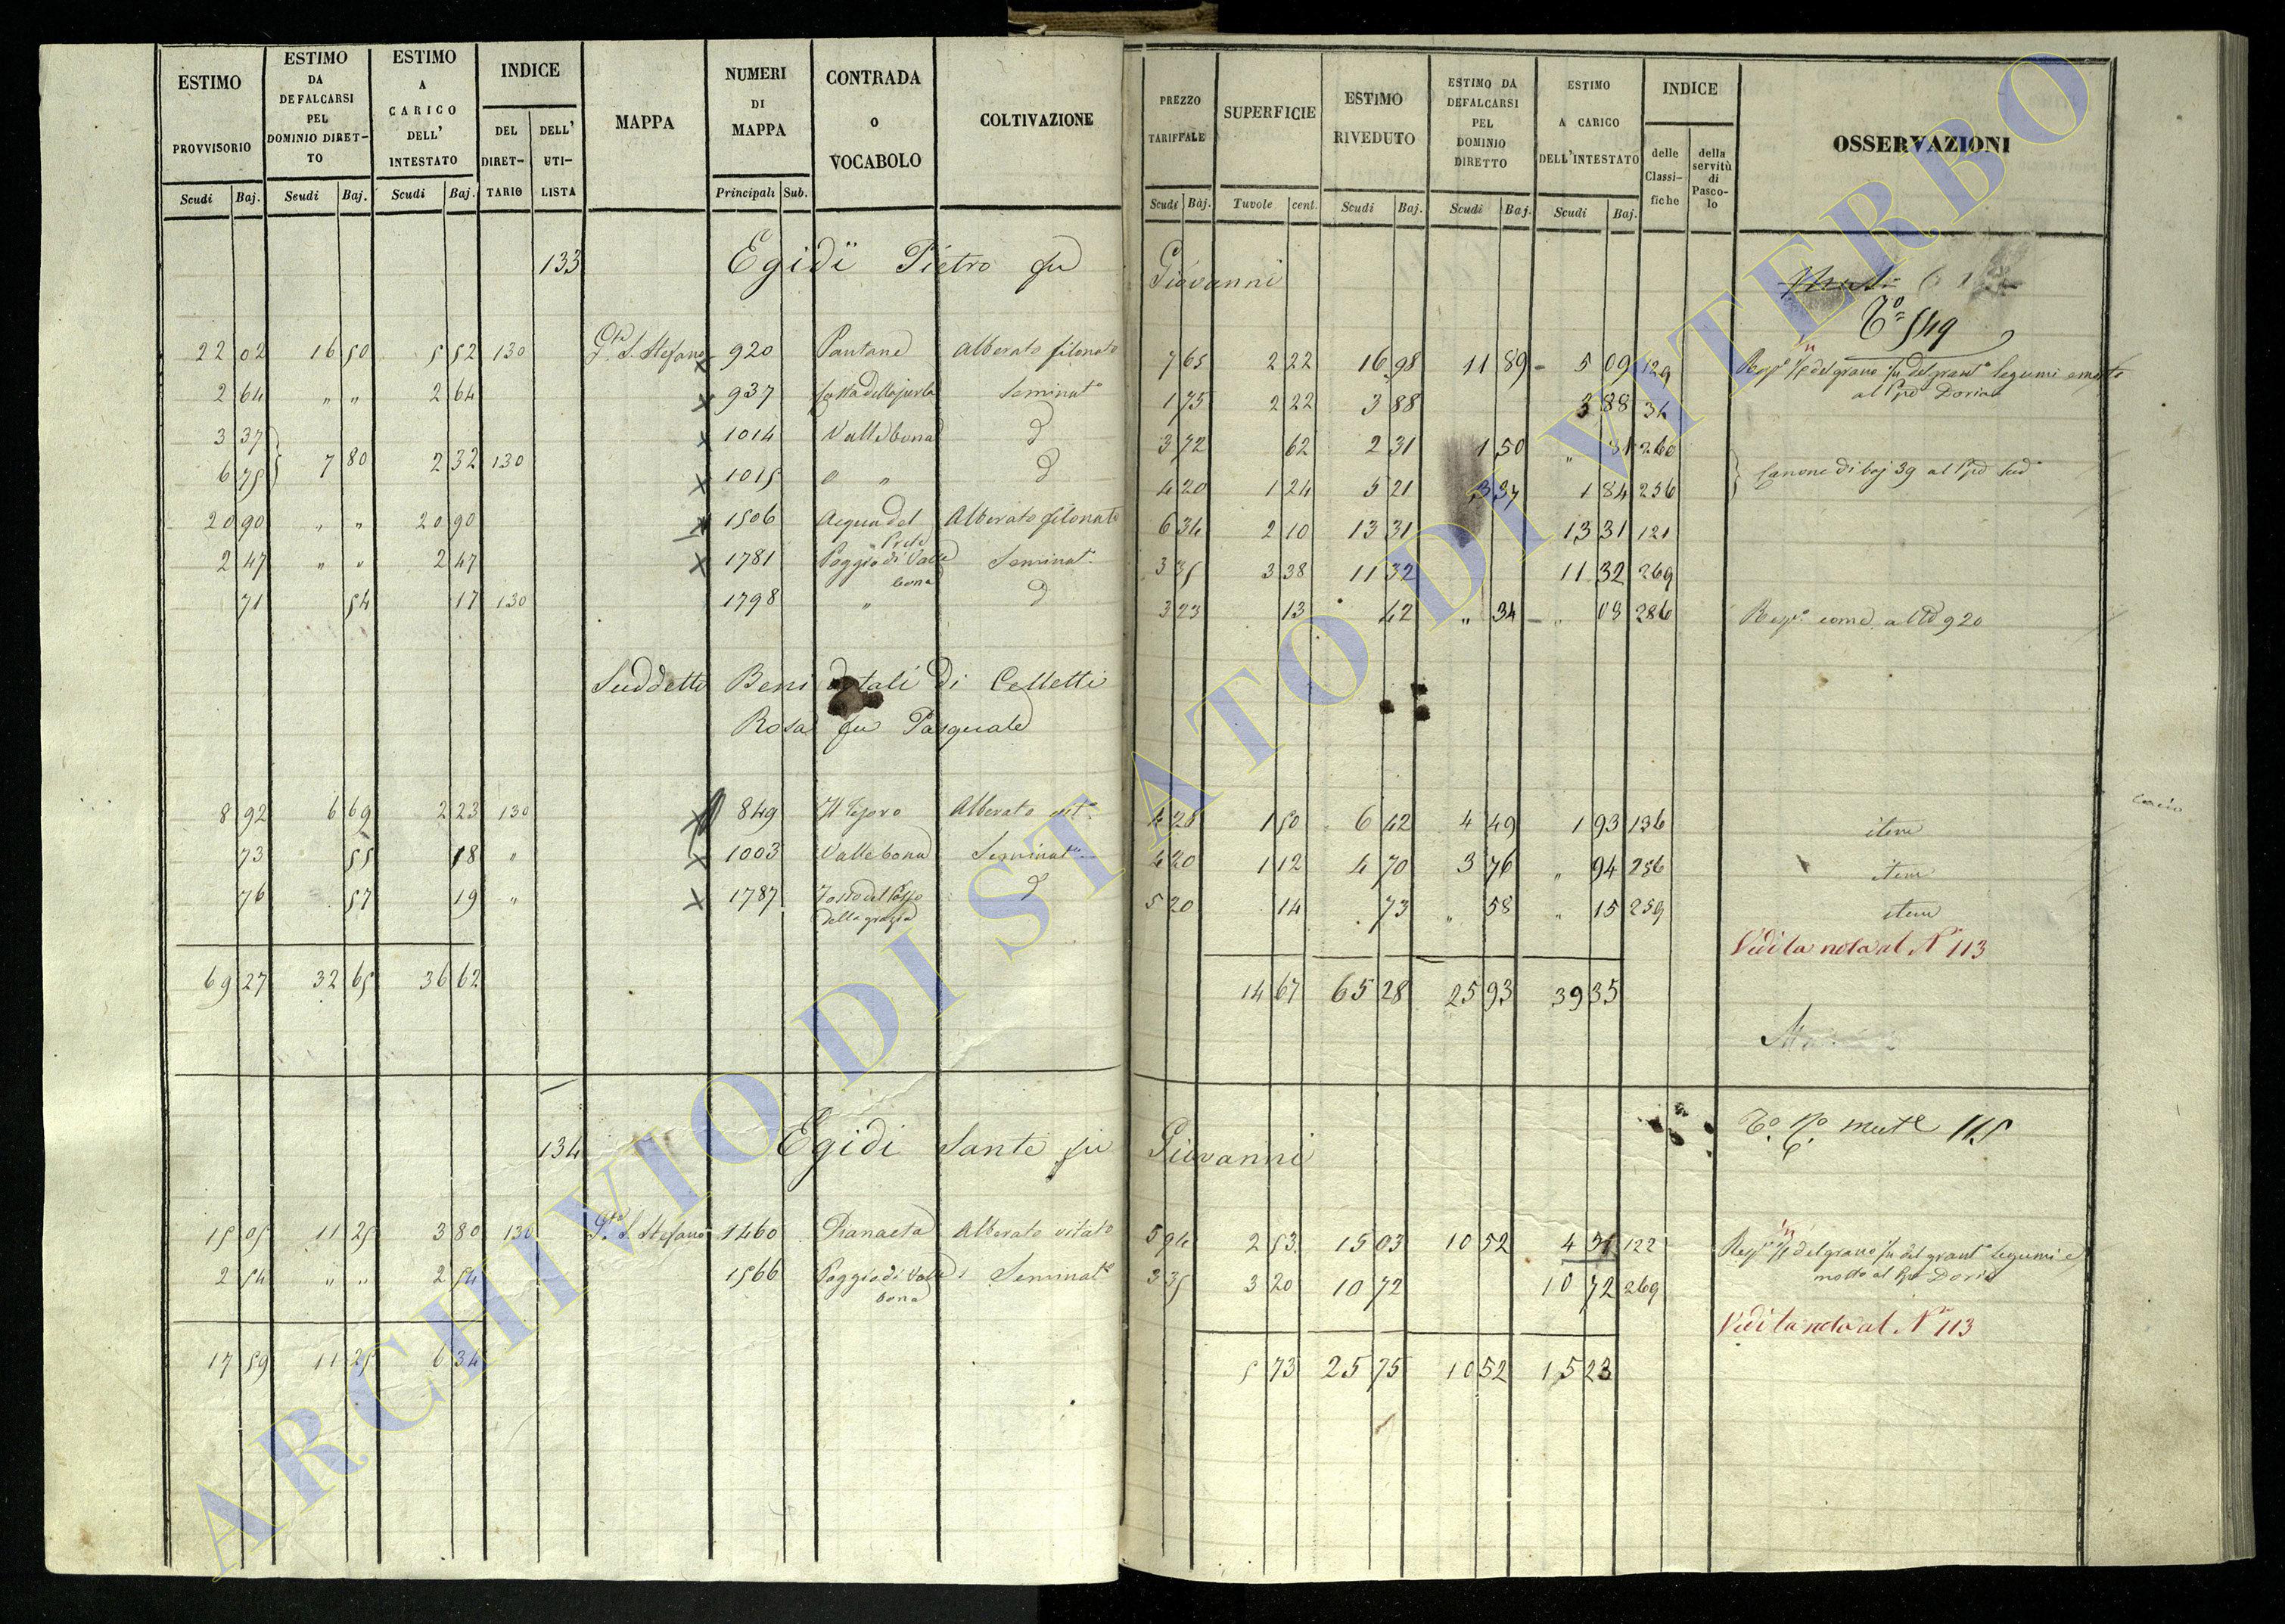 ESTIMO PROVVISORIO Scudi Baj.
ESTIMO DA DEFALCARSI PEL DOMINIO DIRETTO Scudi Baj.
ESTIMO A CARICO DELL' INTESTATO Scudi Baj.
INDICE DEL DIRETTARIO DELL' UTILISTA
MAPPA
NUMERI DI MAPPA Principali Sub.
CONTRADA O VOCABOLO
COLTIVAZIONE
PREZZO TARIFFALE Scudi Baj.
SUPERFICIE Tavole cent.
ESTIMO RIVEDUTO Scudi Baj.
ESTIMO DA DEFALCARSI PEL DOMINIO DIRETTO Scudi Baj.
ESTIMO A CARICO DELL'INTESTATO Scudi Baj.
INDICE delle Classifiche della servitù di Pascolo
OSSERVAZIONI
133 Egidi Pietro fu Giovanni
T.º 549
22 02 16 50 5 52 130 S. Stefano 920 Pantane Alberato filonato 7 65 2 22 16 98 11 89 5 09 129 del grano del grant.º legumi e mosto
2 64 " " 2 64 937 Seminat.º 1 75 2 22 3 88 3 88 34 al Doria
3 37 1014 Vallebona d 3 72 62 2 31 1 50 " 81 260
6 75 7 80 2 32 130 1015 " " d 4 20 1 24 5 21 3 37 1 84 256 Canone di baj 39 al
20 90 " " 20 90 1506 Acqua del Prete Alberato filonato 6 34 2 10 13 31 13 31 121
2 47 " " 2 47 1781 Poggio di Valle bona Seminat.º 3 35 3 38 11 32 11 32 269
71 54 17 130 1798 " d 3 23 13 42 " 34 " 08 286 come al 920
Suddetto Beni dotali di Celletti
Rosa fu Pasquale
8 92 6 69 2 23 130 849 Il Tesoro Alberato vit.º 4 28 1 50 6 42 4 49 1 93 136 item
73 55 18 " 1003 Vallebona Seminat.º 4 20 1 12 4 70 3 76 " 94 256 item
76 57 19 " 1787 della grazia d 5 20 14 73 " 58 " 15 259 item
Vedi la nota al N.º 113
69 27 32 65 36 62 14 67 65 28 25 93 39 35
134 Egidi Sante fu Giovanni
115
15 05 11 25 3 80 130 S. Stefano 1460 Pianaeta Alberato vitato 5 94 2 53 15 03 10 52 4 51 122 del grano del grant.º legumi e
2 54 " " 2 54 1566 Poggio di Valle bona Seminat.º 3 35 3 20 10 72 10 72 269 mosto al Doria
Vedi la nota al N.º 113
17 59 11 25 6 34 5 73 25 75 10 52 15 23
ARCHIVIO DI STATO DI VITERBO